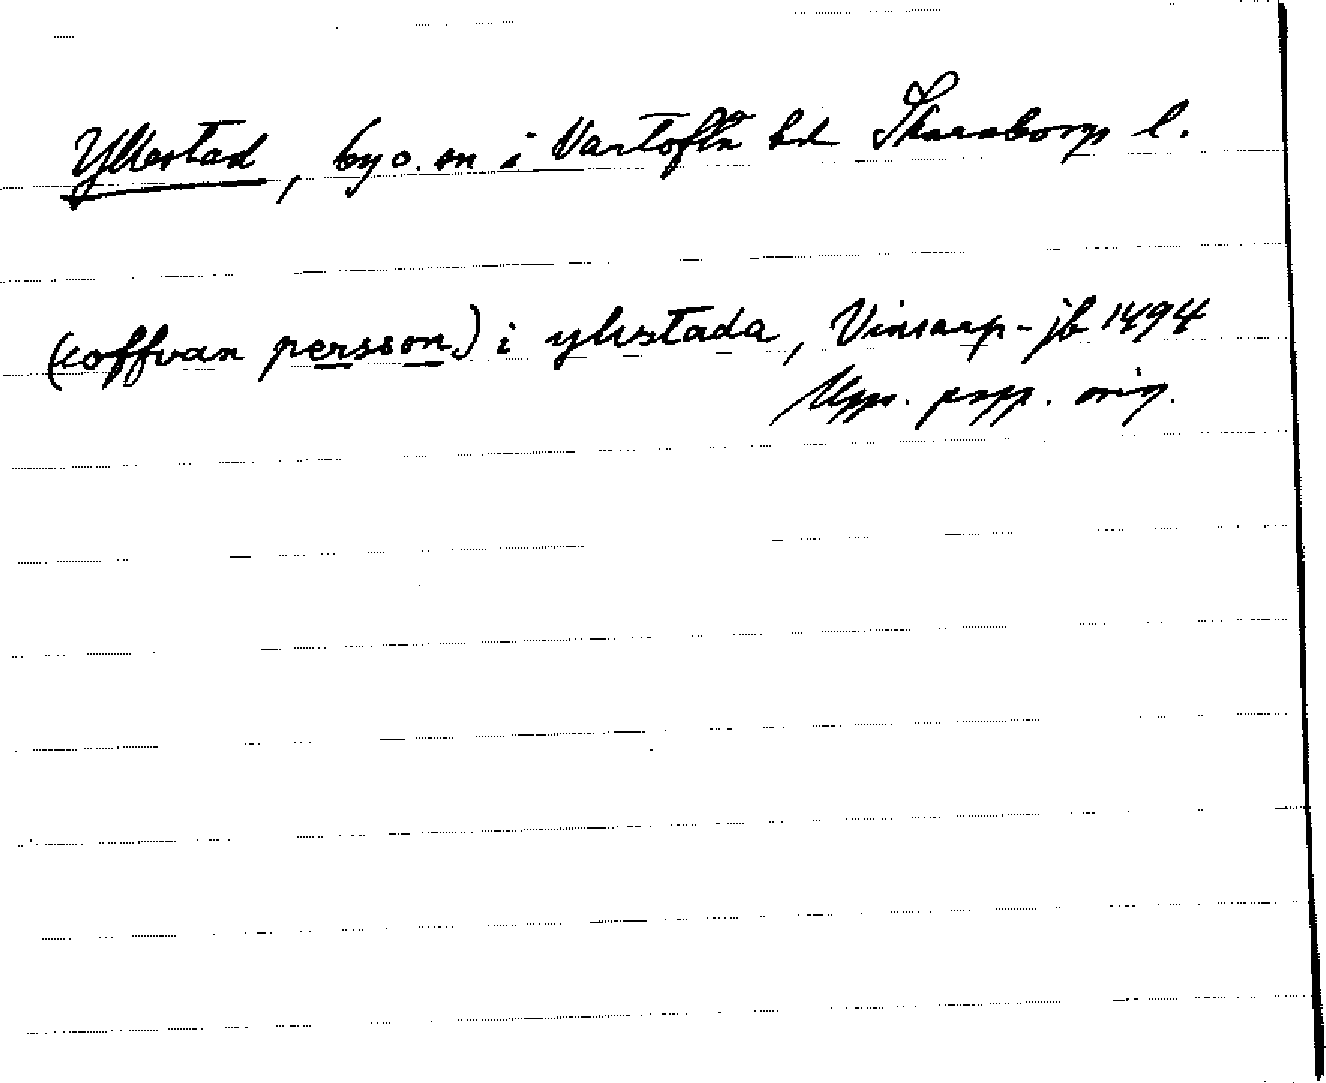 Yllestad, by o. sn i Vartofta hd Skaraborgs l.
(coffvan persson) i ylistada, Vinsarp-jb 1494
Upps. papp. orig.